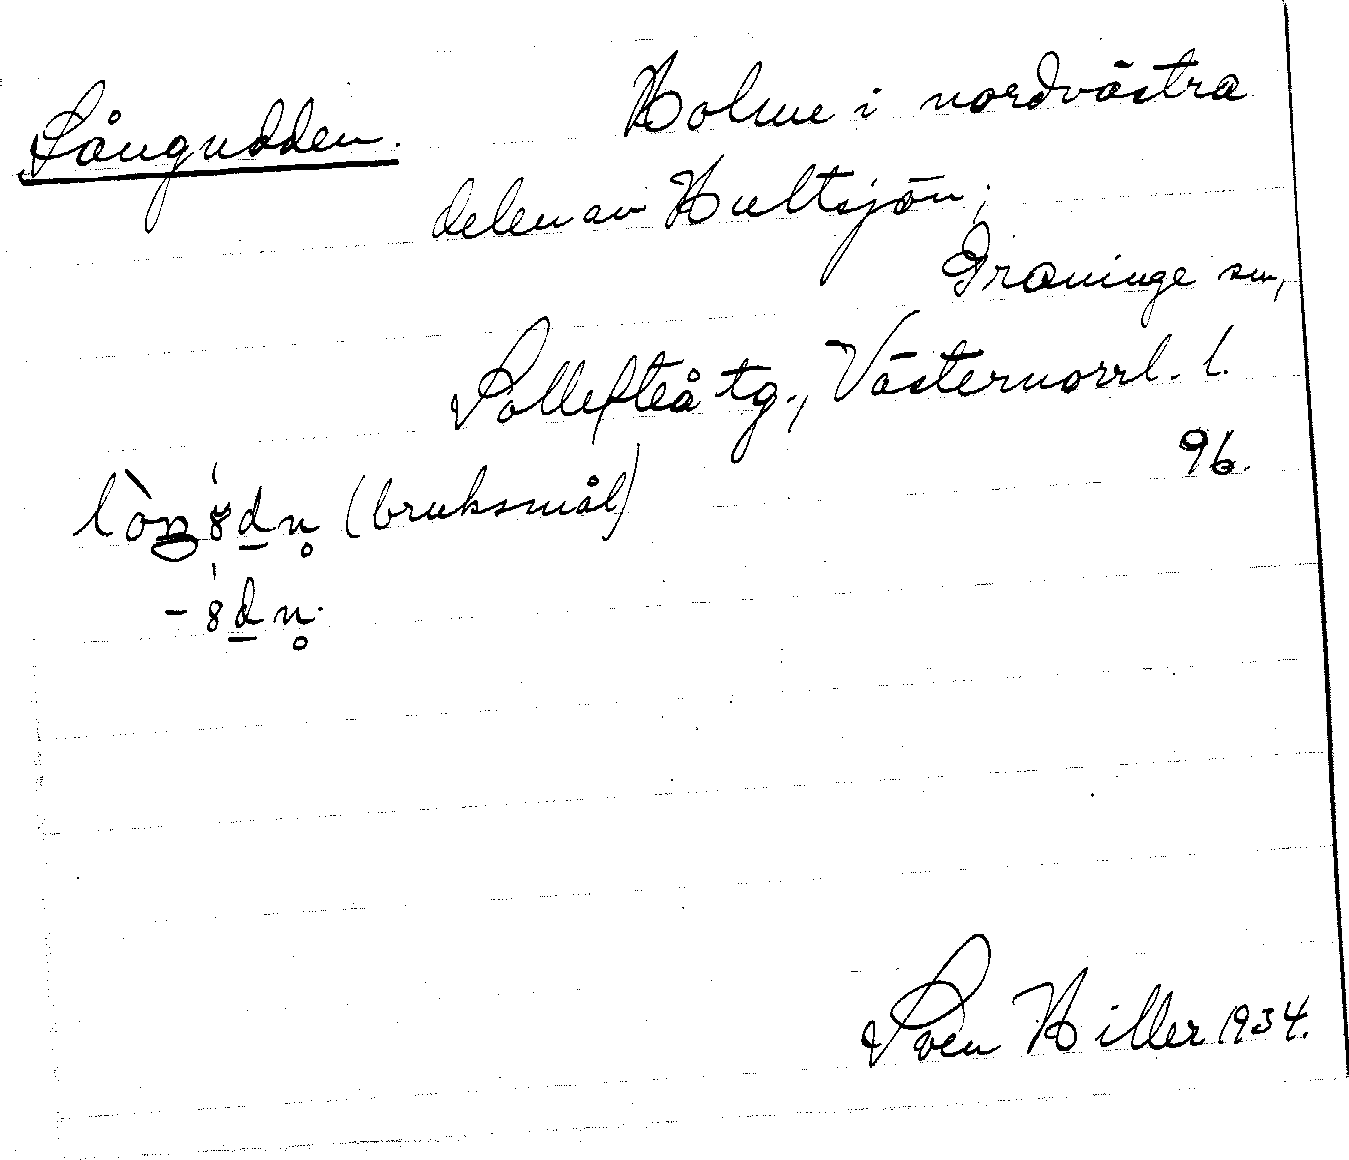 Långudden. Holme i nordvästra
delen av Hultsjön;
Graninge sn,
Sollefteå tg., Västernorrl. l.
96.
(bruksmål)
Sven Hiller 1934.